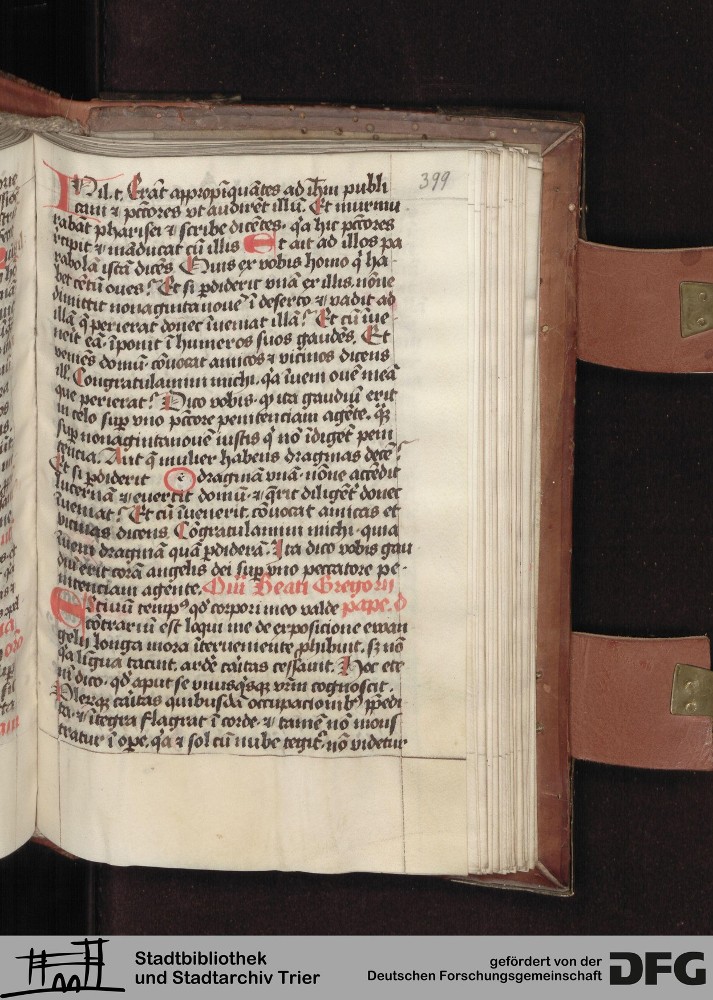 399
In il. t. Erāt appropīquātes ad ihm publi
cani ⁊ pctōres vt audirēt illū. Et murmu
rabāt pharisei ⁊ scribe dicētes. qa hic pctōres
recipit ⁊ māducat cū illis Et ait ad illos pa
rabolā istā dicēs. Quis ex vobis homo q̄ ha-
bet cētū oues? Et si pdiderit vnā ex illis. nōne
dimittit nonagintanoue ī deserto. ⁊ vadit ad
illā q̄ perierat donec īueniat illā? Et cū īue-
nerit eā. īponit ī humeros suos gaudēs. Et
veniēs domū. cōuocat amicos ⁊ vicinos dicens
ill. Congratulamini michi. qa īueni ouē meā
que perierat? Dico vobis. ꝙ ita gaudiū erit
in celo sup vno pctōre penitenciam agēte. qȝ
sup nonagintanouē iustis q̄ nō īdigēt peni
tencia. Aut q̄ mulier habens dragmas decē?
Et si pdiderit dragmā vnā. nōne accēdit
lucernā ⁊ euertit domū. ⁊ q̄rit diligēt donec
īueniat? Et cū īuenerit. cōuocat amicas et
vicinas dicens. Cōgratulamini michi. quia
īueni dragmā quā pdiderā. Ita dico vobis gau
diū erit corā angelis dei sup vno peccatore pe-
nitenciam agente. Om̄ Beati Gregorii
Estiuū tempꝰ qd corpori meo valde pape. o
cōtrariū est loqui me de exposicione ewan
gelii longa mora īterueniente phibuit. sȝ nō
qa līgua tacuit. ardē caītas cessauit. Hoc ete
ni dico. qd aput se vnusqsqȝ vrm cognoscit.
Plerūqȝ caītas quibusdā occupacionibȝ īpedi
ta. ⁊ ītegra flagrat ī corde. ⁊ tamē nō mons
tratur ī ope. qa ⁊ sol cū nube tegit. nō videtur
Stadtbibliothek
und Stadtarchiv Trier
gefördert von der
Deutschen Forschungsgemeinschaft
DFG